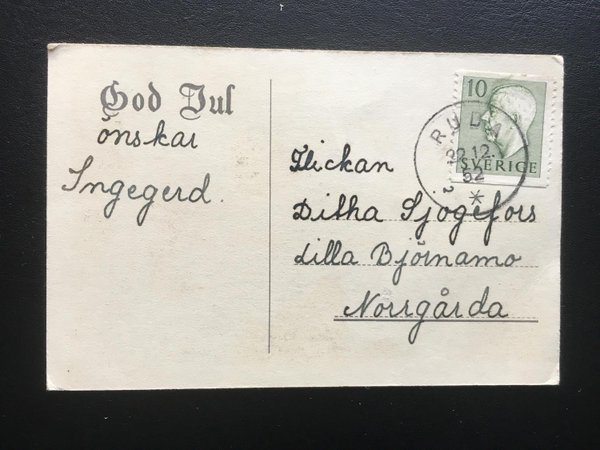 God Jul
önskar
Ingegerd.
10
SVERIGE
RUDA
22.12.
52
2
Flickan
Ditha Sjogefors
Lilla Björnamo
Norrgårda